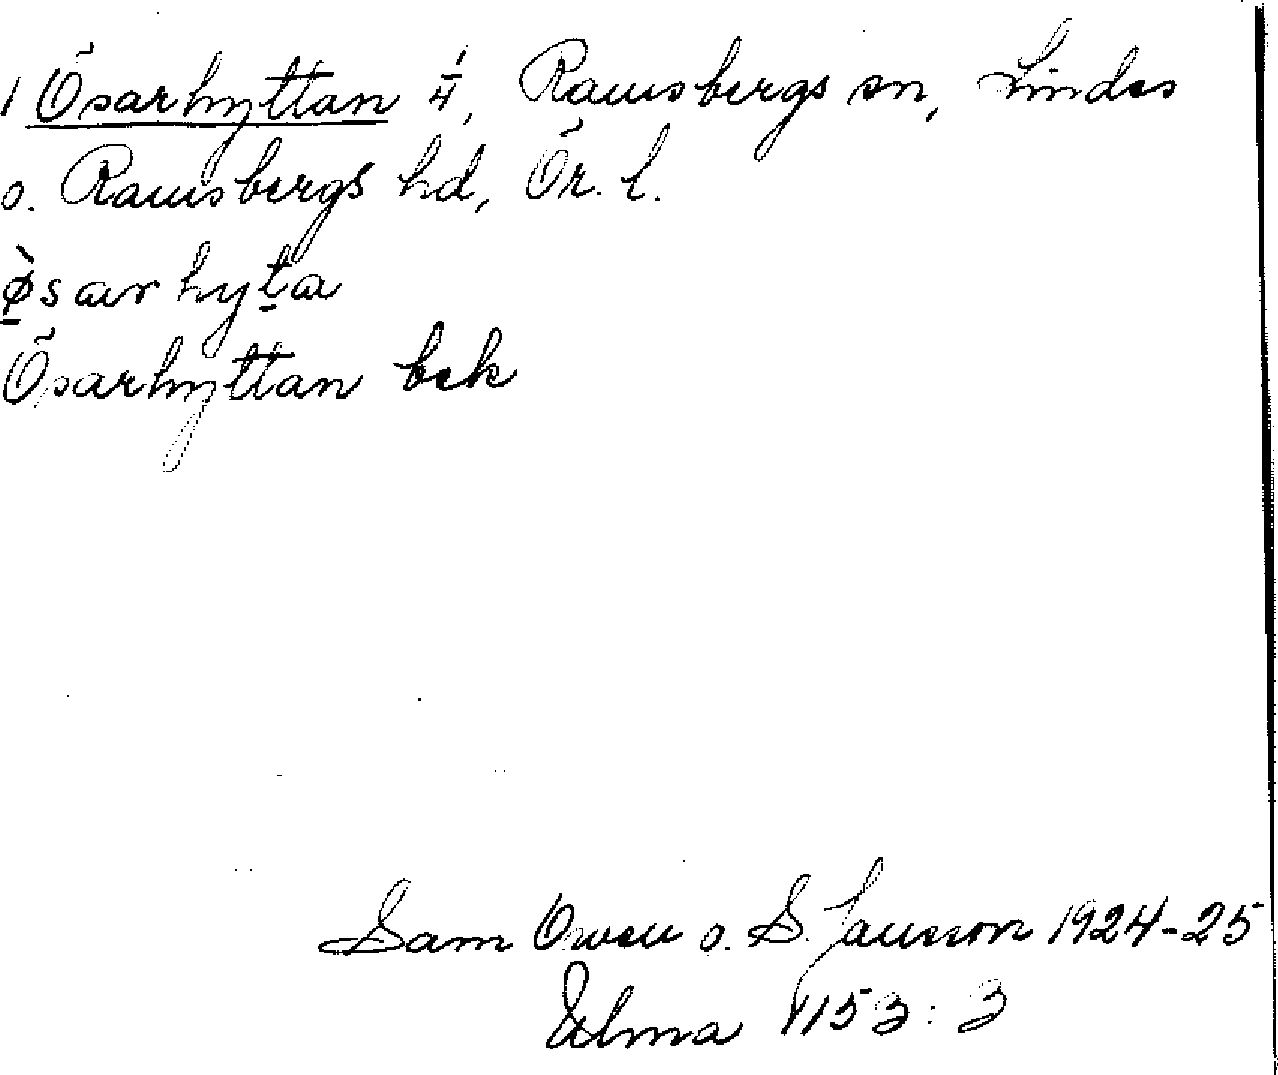 1 Ösarhyttan 1/4, Ramsbergs sn, Lindes
o. Ramsbergs hd, Ör. l.
ø̀sarhyta
Ösarhyttan bek
Sam Owen o. S. Jansson 1924-25
Ulma 1153:3